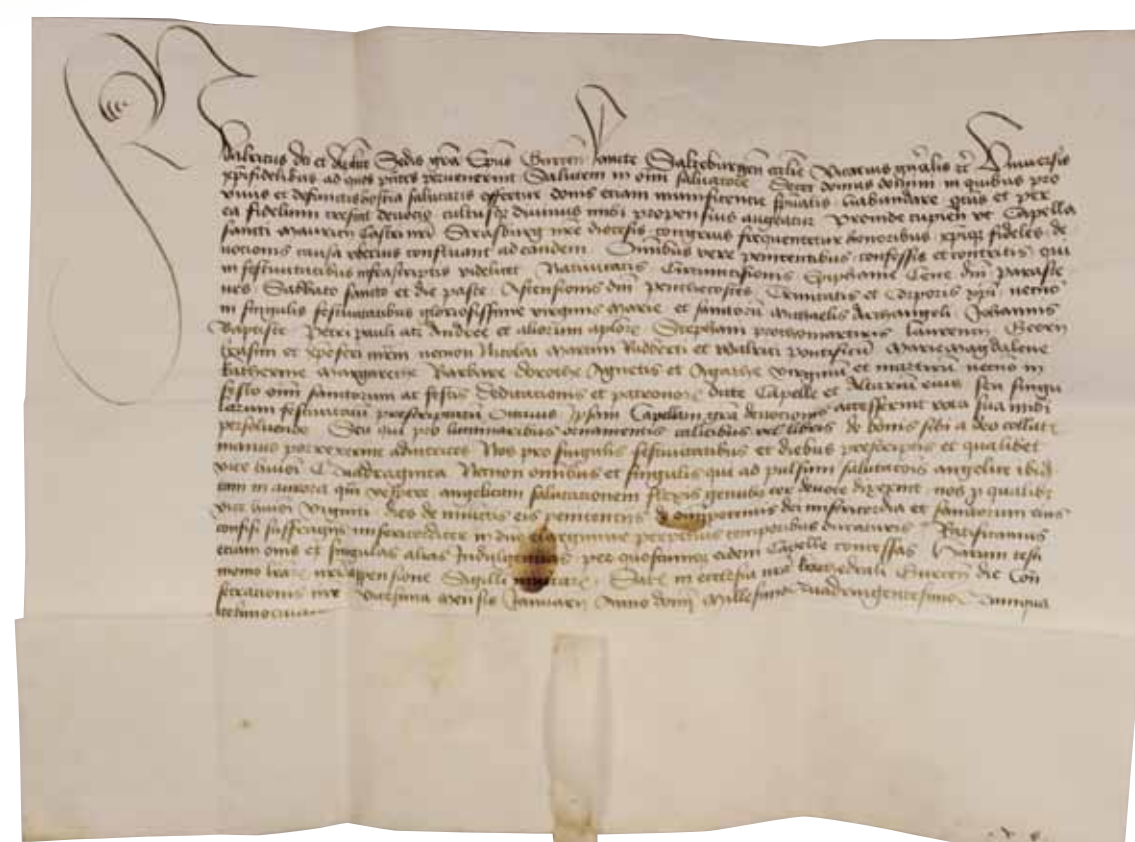 Ualricus dei et aplice Sedis gra Epus Gurcen sancte Saltzburgen ecclie Vicarius gnalis etc Universis
xpifidelibus ad quos pntes pervenerint Salutem in oim salvatore Decet domus domini in quibus pro
vivis et defunctis hostia salutaris offertur donis etiam munificentie spualis habundare quatenus et per
ea fidelium crescat devotio cultusque divinus inibi propensius augeatur Proinde cupien ut Capella
sancti Mauricii Castri nri Strasburg nre diocesis congruis frequentetur honoribus xpique fideles de
votionis causa uberius confluant ad eandem Omnibus vere penitentibus confessis et contritis qui
in festivitatibus infrascriptis videlicet Nativitatis Circumcisionis Epiphanie Cene dni parasce
ves Sabbato sancto et die pasce Ascensionis dni penthecostes Trinitatis et Corporis xpi necno
in singulis festivitatibus gloriosissime virginis marie et sanctoru Michaelis Archangeli Johannis
Baptiste Petri pauli ac Andree et aliorum aplor Stephani prothomartiris laurencii Georii
Erasmi et xpoferi mrm necnon Nicolai Martini Rudberti et Ualrici pontificu Marie magdalene
katherine margarethe Barbare dorothe Agnetis et Agathe virginu et martiru necno in
festo oim sanctorum ac festis dedicationis et patronor dicte Capelle et Altariu eius seu singu
larum festivitatu prescriptaru Octavis Ipsam Capellam gra devotionis accesserint vota sua inibi
persolvendo Seu qui pro luminaribus ornamentis calicibus vel libris de bonis sibi a deo collatis
manus porrexerint adiutrices Nos pro singulis festivitatibus et diebus prescriptis et qualibet
vice huiusmodi Quadraginta Necnon omnibus et singulis qui ad pulsum salutationis angelice ibid
tam in aurora qm vespere angelicam salutationem flexis genibus devote dixerint nos p qualibet
vice huiusmodi viginti dies de iniunctis eis penitentiis de omnipotentis dei misericordia et sanctorum eius
confisi suffragiis misericorditer in dno perpetuis temporibus duraturis Ratificamus
etiam omnes et singulas alias Indulgentias per quoscumque eidem Capelle concessas Harum testi
monio lrar nri appensione Sigilli Dat in ecclesia nra kathedrali Gurcen die Con
secrationis nre vicesima mensis Januarii Anno domini Millesimo Quadringentesimo Quinqua